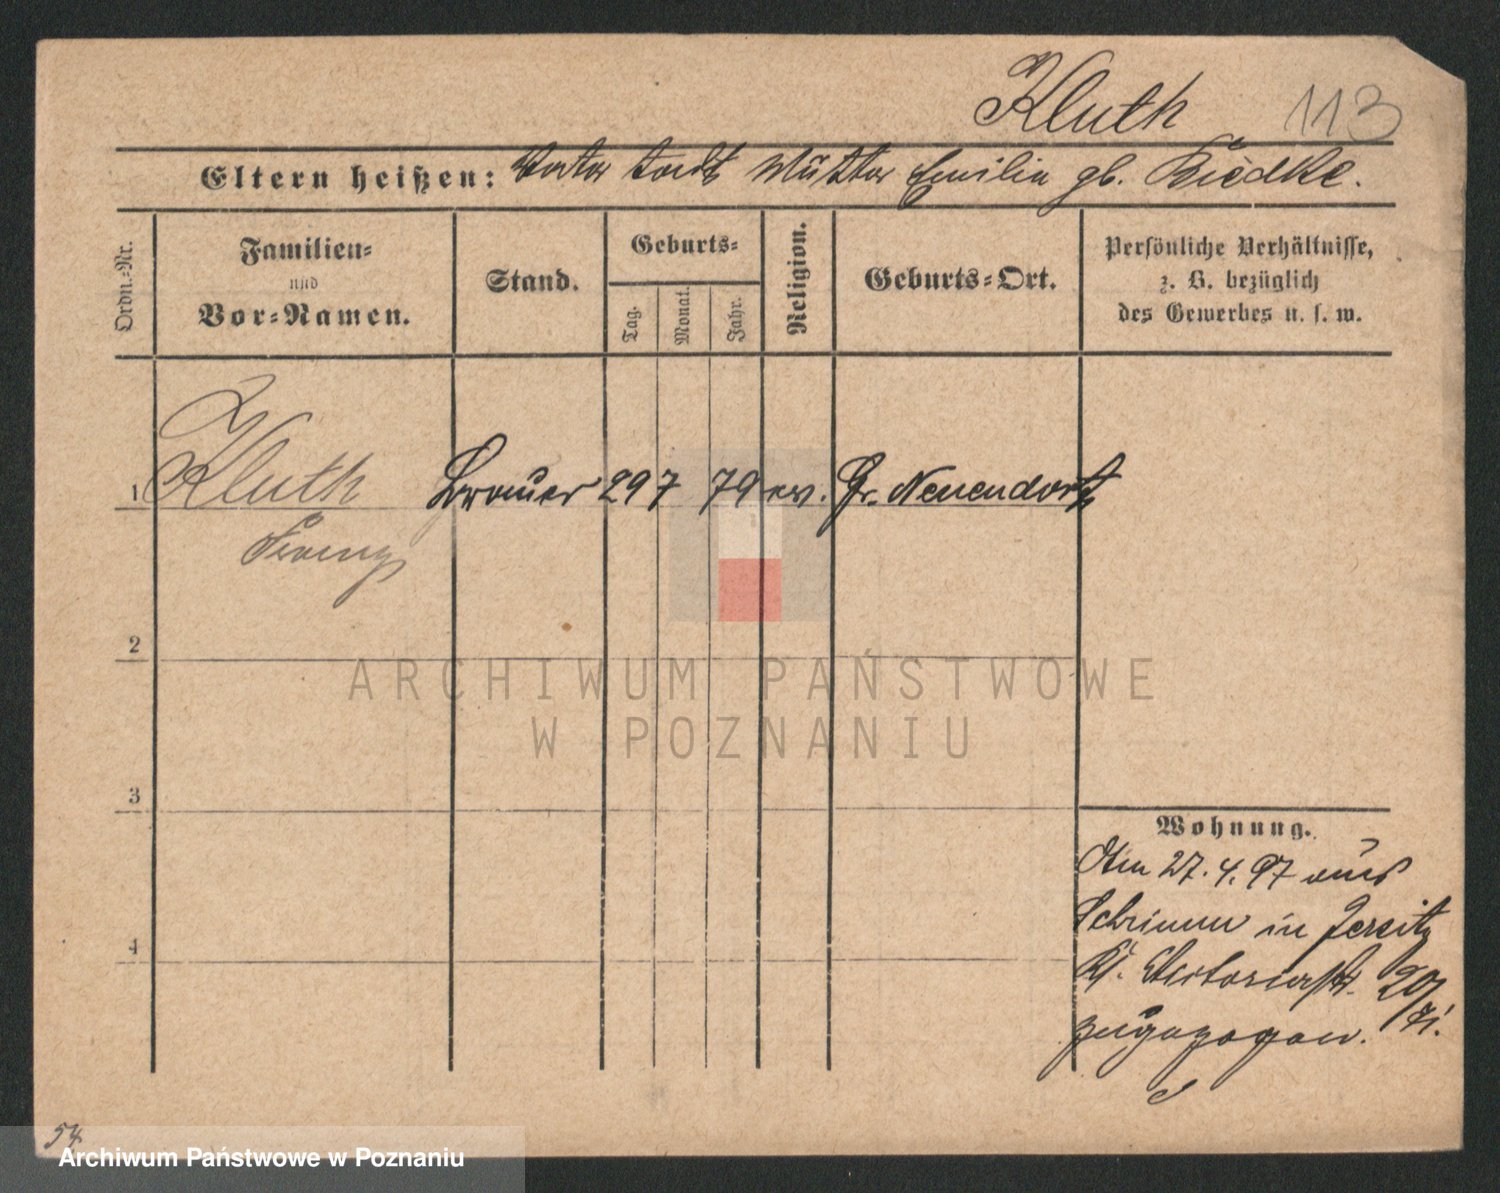 Kluth 113
Eltern heißen: Vater todt Mutter Emilie gb. Riedke.
Ordn.-Nr.
Familien-
und
Vor-Namen.
Stand.
Geburts-
Tag.
Monat.
Jahr.
Religion.
Geburts-Ort.
Persönliche Verhältnisse,
z. B. bezüglich
des Gewerbes u. s. w.
1 Kluth Brauer 29 7 79 ev. Gr. Neuendorf
Franz
2
ARCHIWUM PAŃSTWOWE
W POZNANIU
3
Wohnung.
Am 27. 4. 97 aus
Schrimm in Jersitz
4
Kl. Victoriastr. 20/
zugezogen.
54
Archiwum Państwowe w Poznaniu